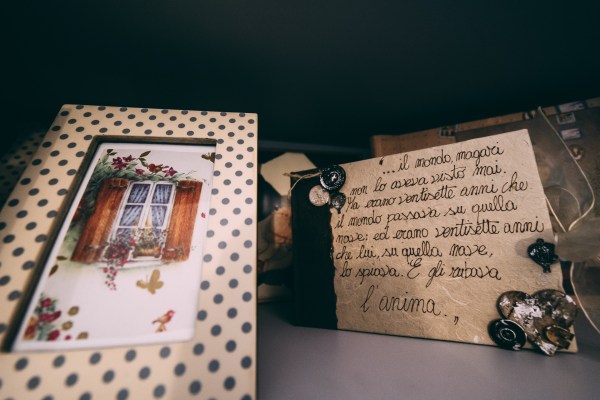 ...il mondo, magari
non lo aveva visto mai.
Ma erano ventisette anni che
il mondo passava su quella
nave: ed erano ventisette anni
che lui, su quella nave,
lo spiava. E gli rubava
l'anima.„